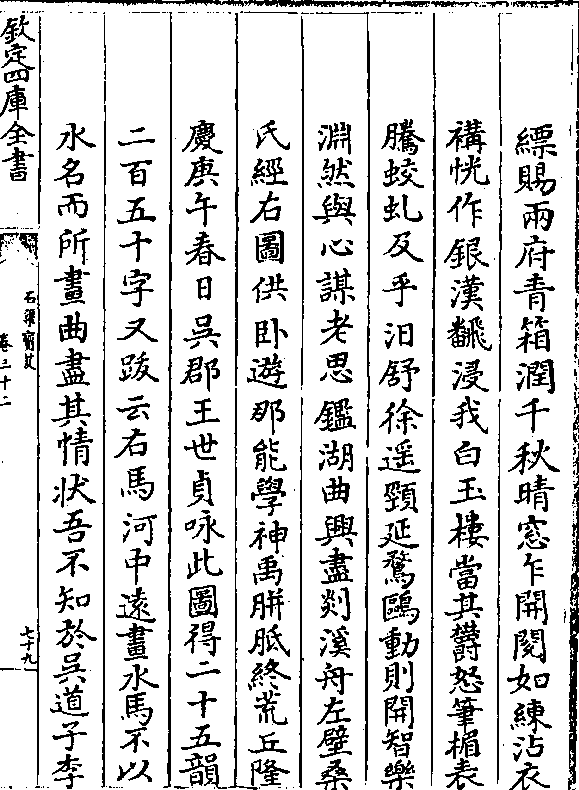 縹賜兩府青箱潤千秋晴窓乍開閲如練沾衣
褠恍作銀漢飜浸我白玉樓當其欝怒筆楣表
騰蛟虬及乎汨舒徐遥頸延鶩鷗動則開智樂
淵然與心謀老思鑑湖曲興盡剡溪舟左壁桑
氏經右圖供卧遊那能學神禹胼胝終荒丘隆
慶庚午春日吳郡王世貞咏此圖得二十五韻
二百五十字又跋云右馬河中遠畫水馬不以
水名而所畫曲盡其情状吾不知於吳道子李
欽定四庫全書
石渠寶笈
卷三十二
七十九